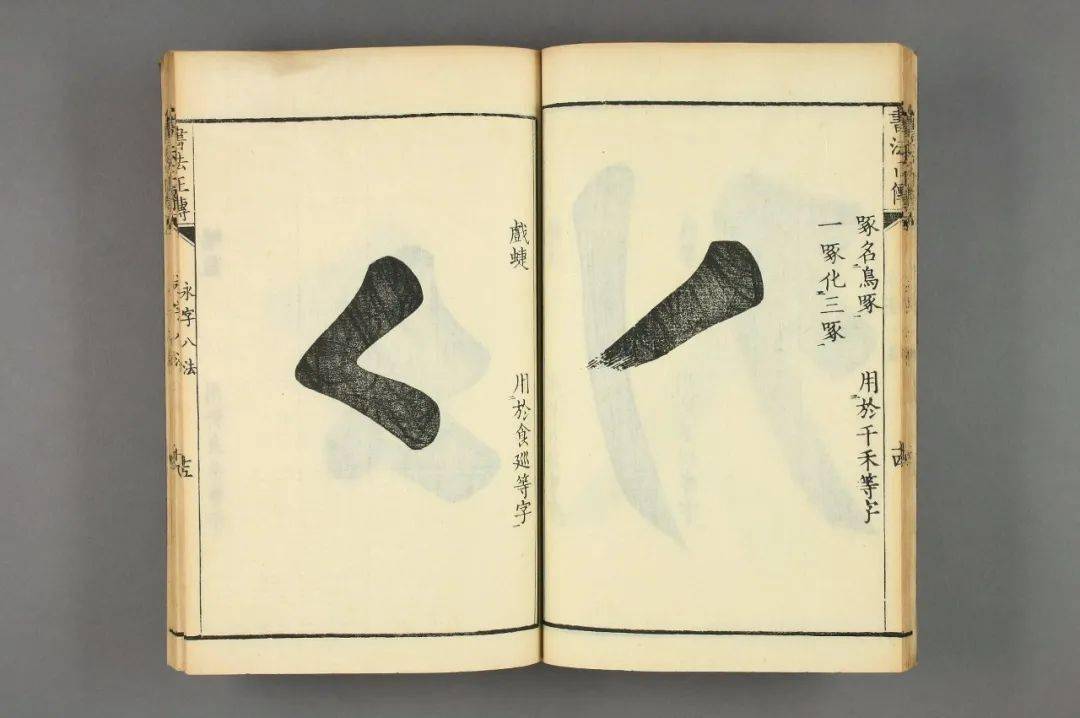 啄名鳥啄
用於千禾等字
一啄化三啄
戲蜨
用於食巡等字
書法正傳
永字八法